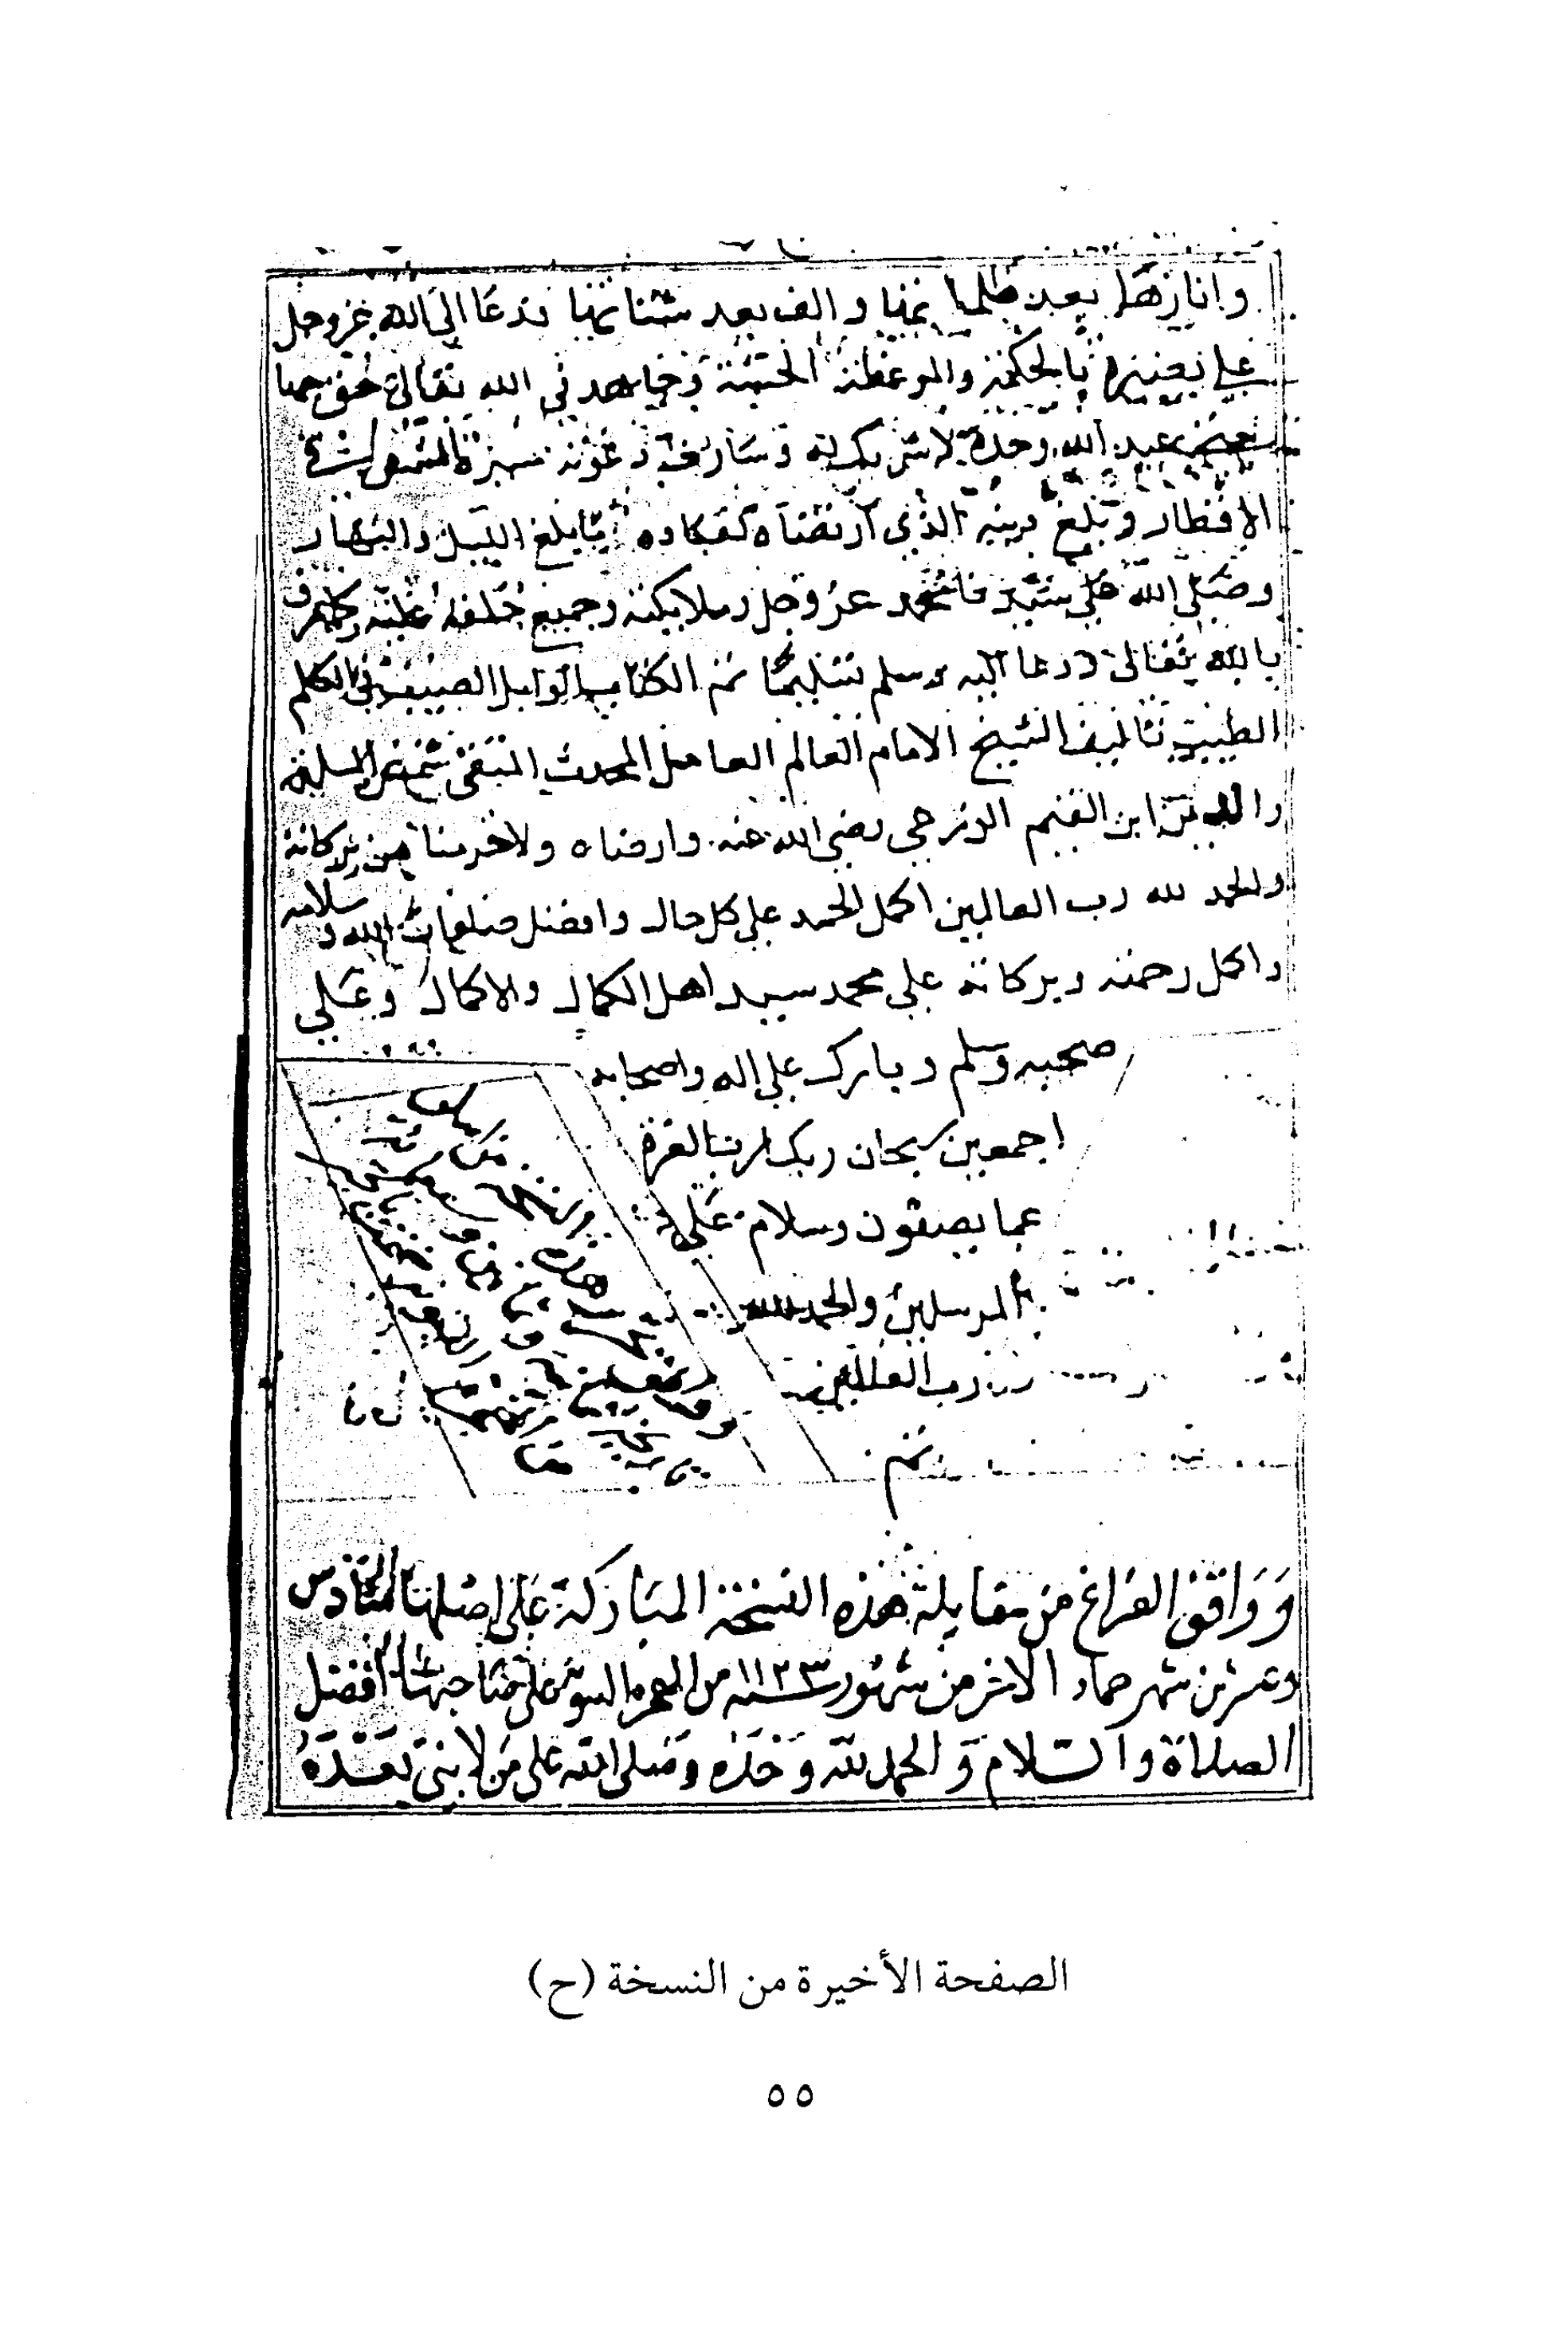 وانارها بعد ظلماتها والف بعد شتاتها ودعا الى الله عز وجل
على بصيرة بالحكمة والموعظة الحسنة وجاهد في الله تعالى حق جهاده
عبد الله وحده لا شريك له وسارت دعوته سيرة الشمس في
الاقطار وبلغ دينه الذي ارتضاه لعباده ما بلغ الليل والنهار
وصلى الله عز وجل وملايكته وجميع خلقه عليه كما عرف
بالله تعالى ودعا اليه وسلم تسليما تم الكتاب الوابل الصيب في الكلم
الطيب تاليف الشيخ الامام العالم العامل المحدث المتقن شمس
والدين ابن القيم الزرعي رضي الله عنه وارضاه ولا حرمنا من بركاته
والحمد لله رب العالمين اكمل الحمد على كل حال وافضل صلوات الله وسلامه
واكمل رحمته وبركاته على محمد سيد اهل الكمال والاكمال وعلى
صحبه وسلم وبارك على اله واصحابه
اجمعين سبحان ربك رب العزة
عما يصفون وسلام على
المرسلين والحمد لله
رب العالمين
تم
وَوَافق الفراغ من مقابلة هذه النسخة المباركة على اصلها السادس
وعشرين شهر جماد الاخر من شهور سنة ١١٢٣ من الهجره النبويه على صاحبها افضل
الصلاة والسلام والحمد لله وحده وصلى الله على من لا نبي بعده
الصفحة الأخيرة من النسخة (ح)
٥٥